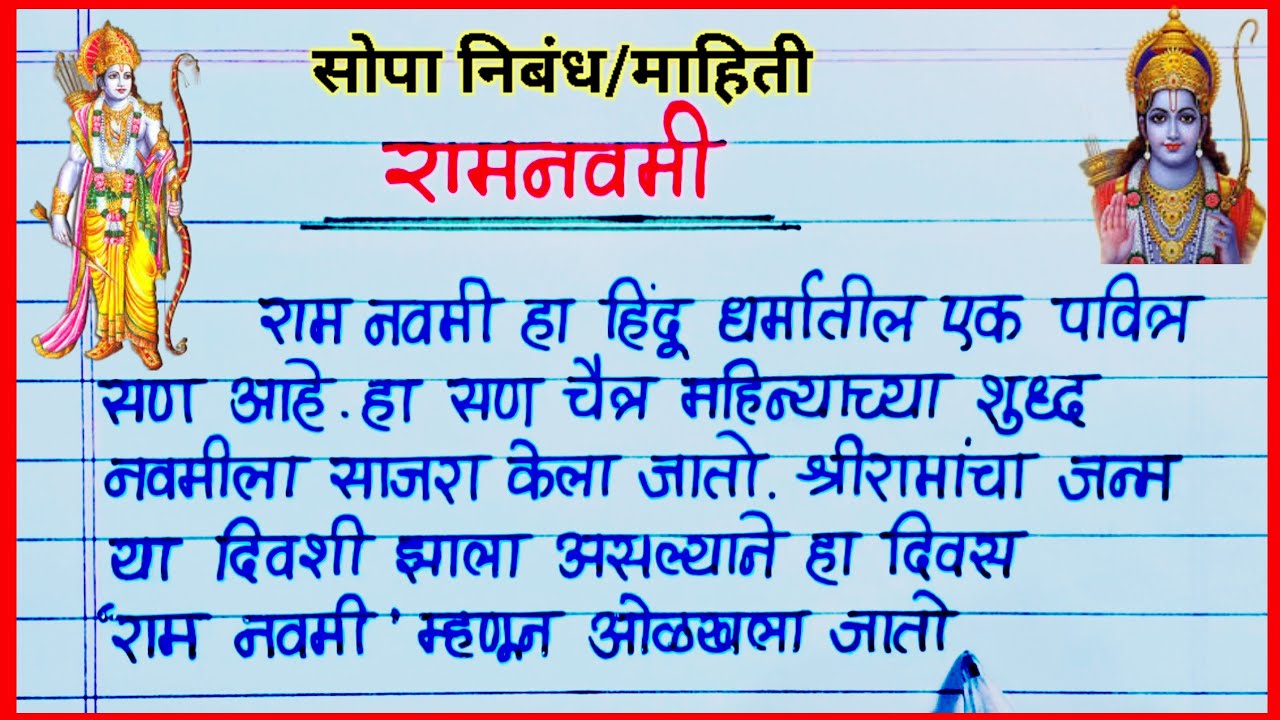 सोपा निबंध/माहिती
रामनवमी
राम नवमी हा हिंदू धर्मातील एक पवित्र
सण आहे. हा सण चैत्र महिन्याच्या शुध्द
नवमीला साजरा केला जातो. श्रीरामांचा जन्म
या दिवशी झाला असल्याने हा दिवस
“राम नवमी ' म्हणून ओळखला जातो